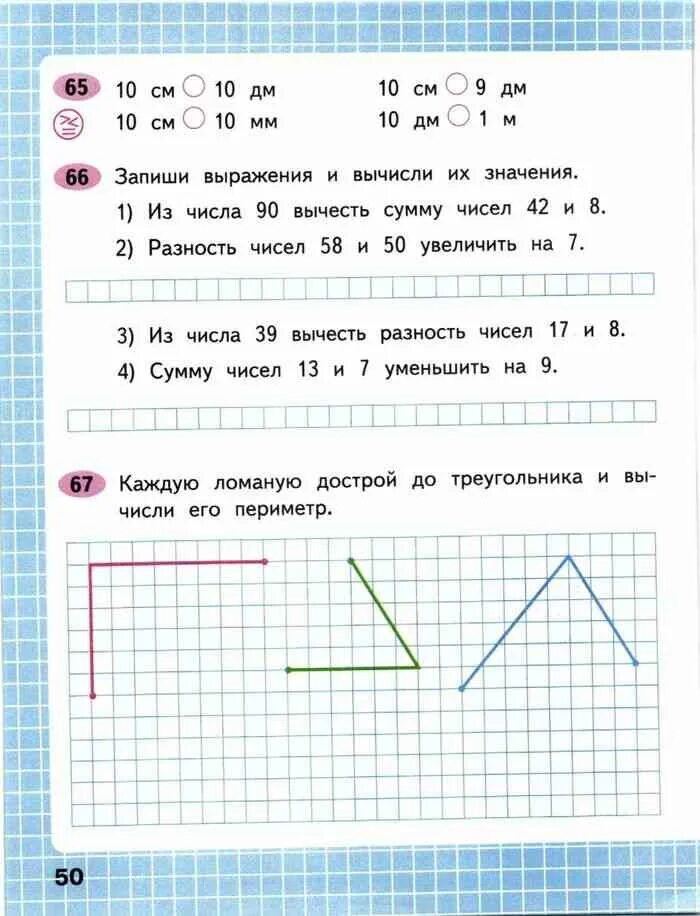 65 10 см ○ 10 дм 10 см ○ 9 дм
10 см ○ 10 мм 10 дм ○ 1 м
66 Запиши выражения и вычисли их значения.
1) Из числа 90 вычесть сумму чисел 42 и 8.
2) Разность чисел 58 и 50 увеличить на 7.
3) Из числа 39 вычесть разность чисел 17 и 8.
4) Сумму чисел 13 и 7 уменьшить на 9.
67 Каждую ломаную дострой до треугольника и вы-
числи его периметр.
50